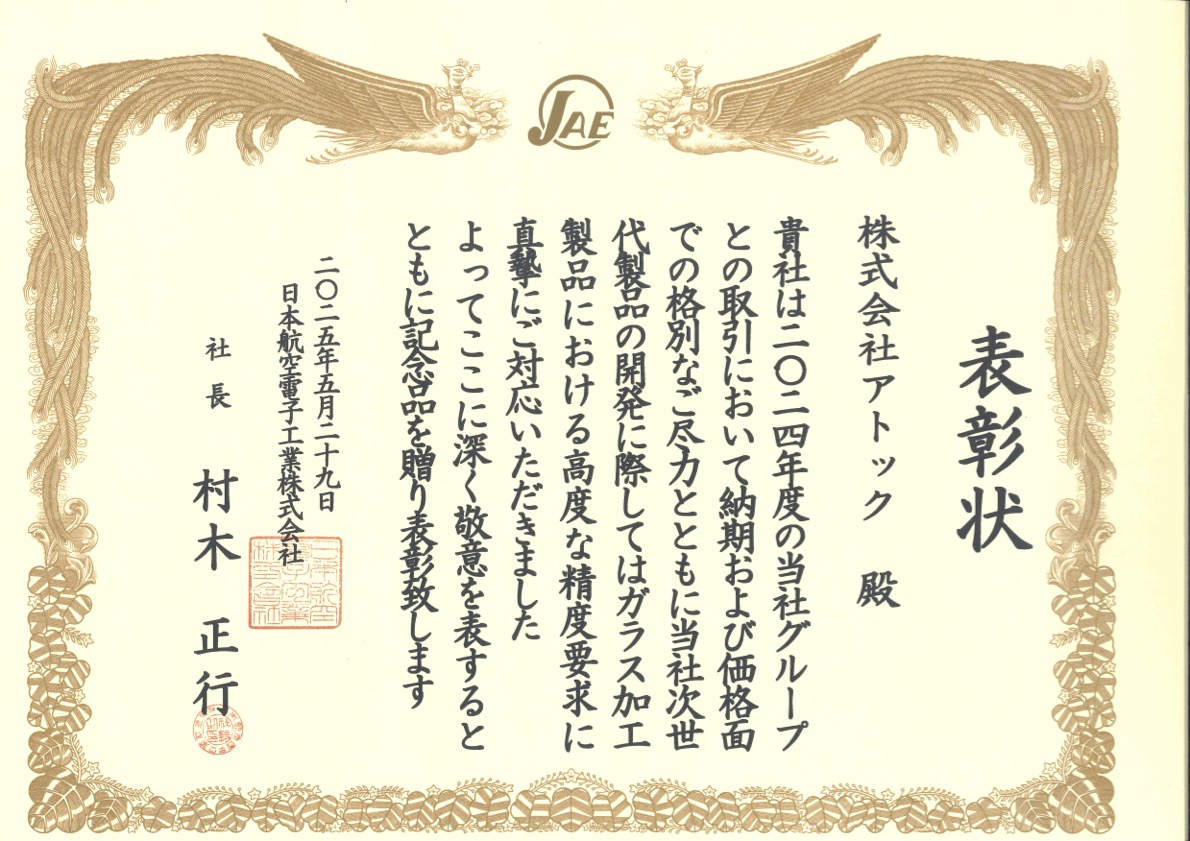 JAE
表彰状
株式会社アトック 殿
貴社は二〇二四年度の当社グループ
との取引において納期および価格面
での格別なご尽力とともに当社次世
代製品の開発に際してはガラス加工
製品における高度な精度要求に
真摯にご対応いただきました
よってここに深く敬意を表すると
ともに記念品を贈り表彰致します
二〇二五年五月二十九日
日本航空電子工業株式会社
社長 村木 正行